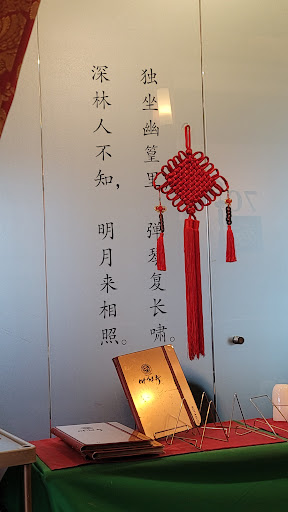 独坐幽篁里 弹琴复长啸。
深林人不知， 明月来相照。